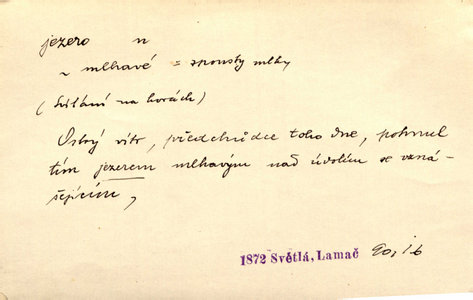 jezero n
~ mlhavé = spousty mlhy
(Svítání na horách)
Ostrý vítr, předchůdce toho dne, pohnul
tím jezerem mlhavým nad údolím se vzná-
šejícím,
1872 Světlá, Lamač 90, 16